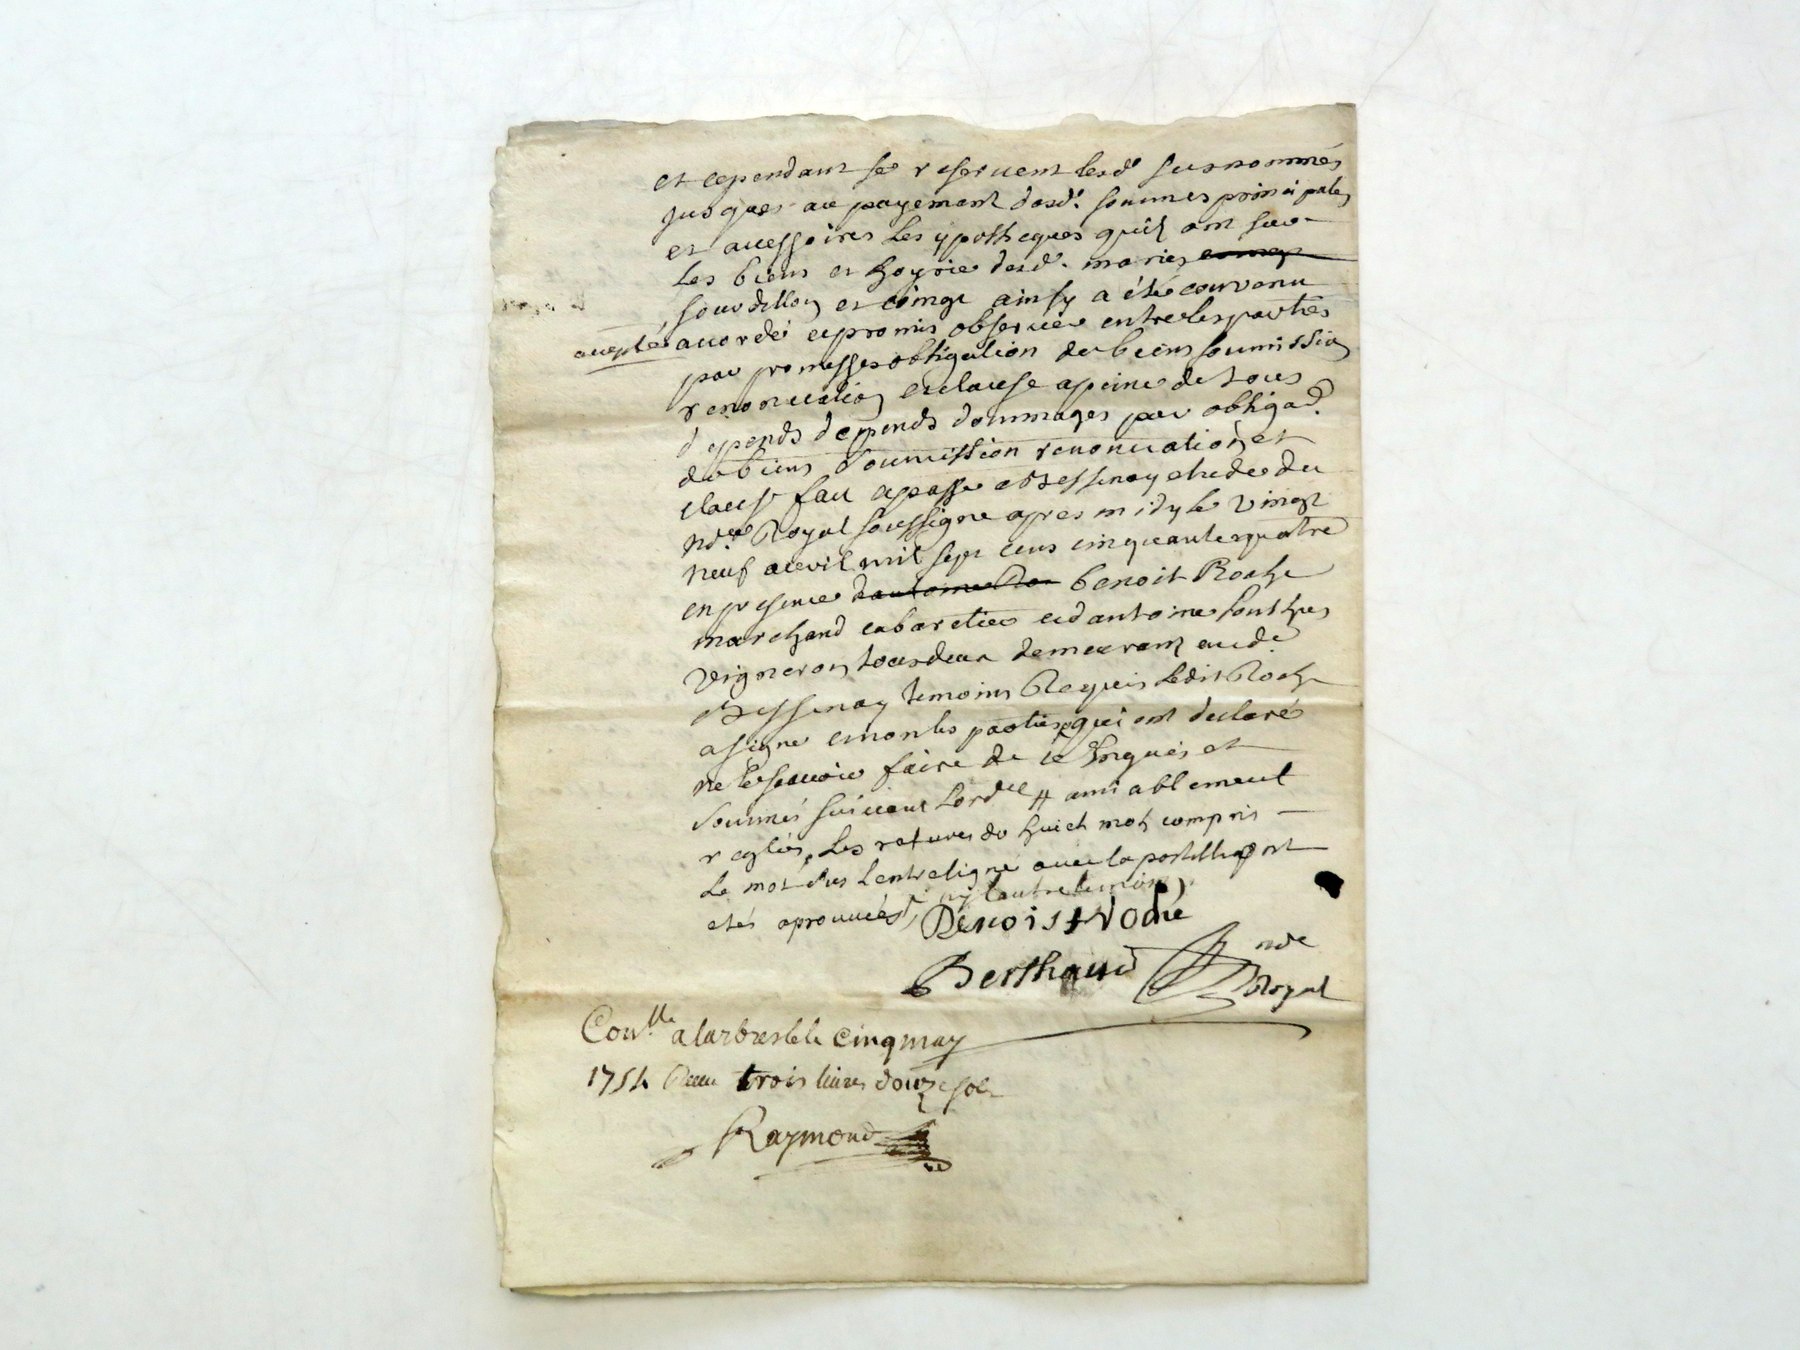 et cependant se reservent lesd. susnommés
jusques au payement desd. sommes principales
et accessoires les ypotheques quils ont sur
les biens et hoyrie desd. mariés
Sourdillon et ainsy a été convenu
accepté accordé et promis observer entre les parties
par promesses obligation de biens soumission
renonciation et clause a peine de tous
depends depends dommages par obligaon.
de biens soumission renonciation et
clause fait et passé a Bessenay etude du
nore. Royal soussigné apres midy le vingt
neuf avril mil sept cens cinquante quatre
en presence Benoit Roche
marchand cabaretier et d'antoine
vigneron tous deux demeurant aud.
Bessenay temoins Requis ledit Roche
a signé et non les parties qui ont declaré
ne le sçavoir faire de ce Enquis et
sommés suivant Lordce # amiablement
reglés, Les ratures de huict mots compris
Le mot entreligne avec la postille ont
etés aprouvées, ny l'autre temoin
Benoist Roche
Berthaud nore
Royal
Conlle a larbresle le cinq may
1754 Receu trois livres douze sols
Raymond